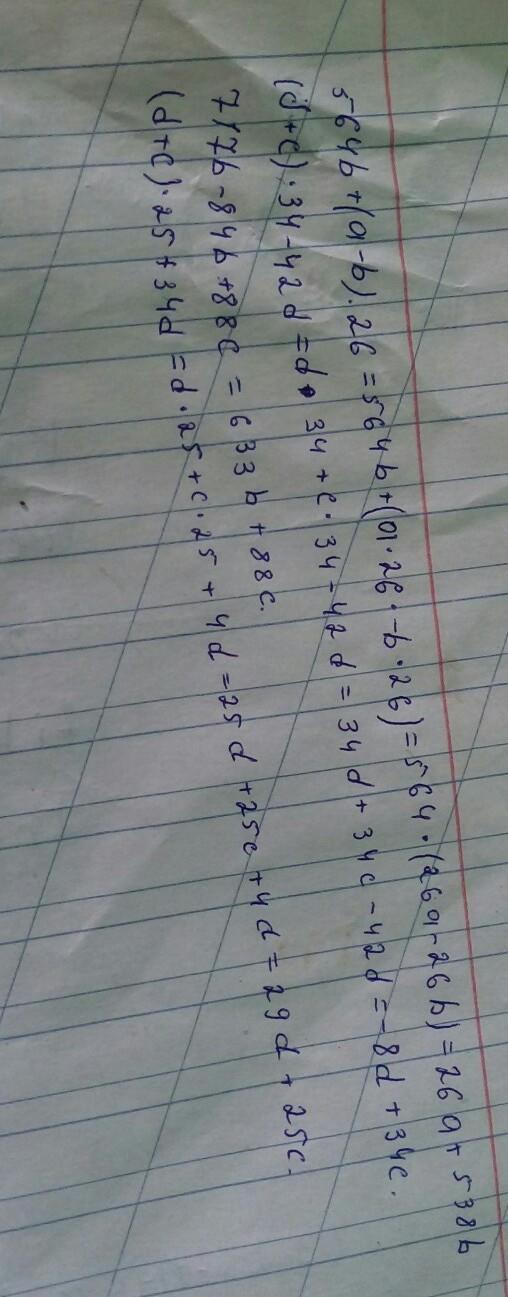 564b+(a-b).26 =564b+(a·26·-b·26)=564·(26a-26b)=26a+538b
(d+c)·34-42d =d·34+c·34-42d=34d+34c-42d=-8d+34c.
717b-84b+88c = 633b+88c.
(d+c)·25+34d =d·25+c·25+4d=25d+25c+4d=29d+25c.